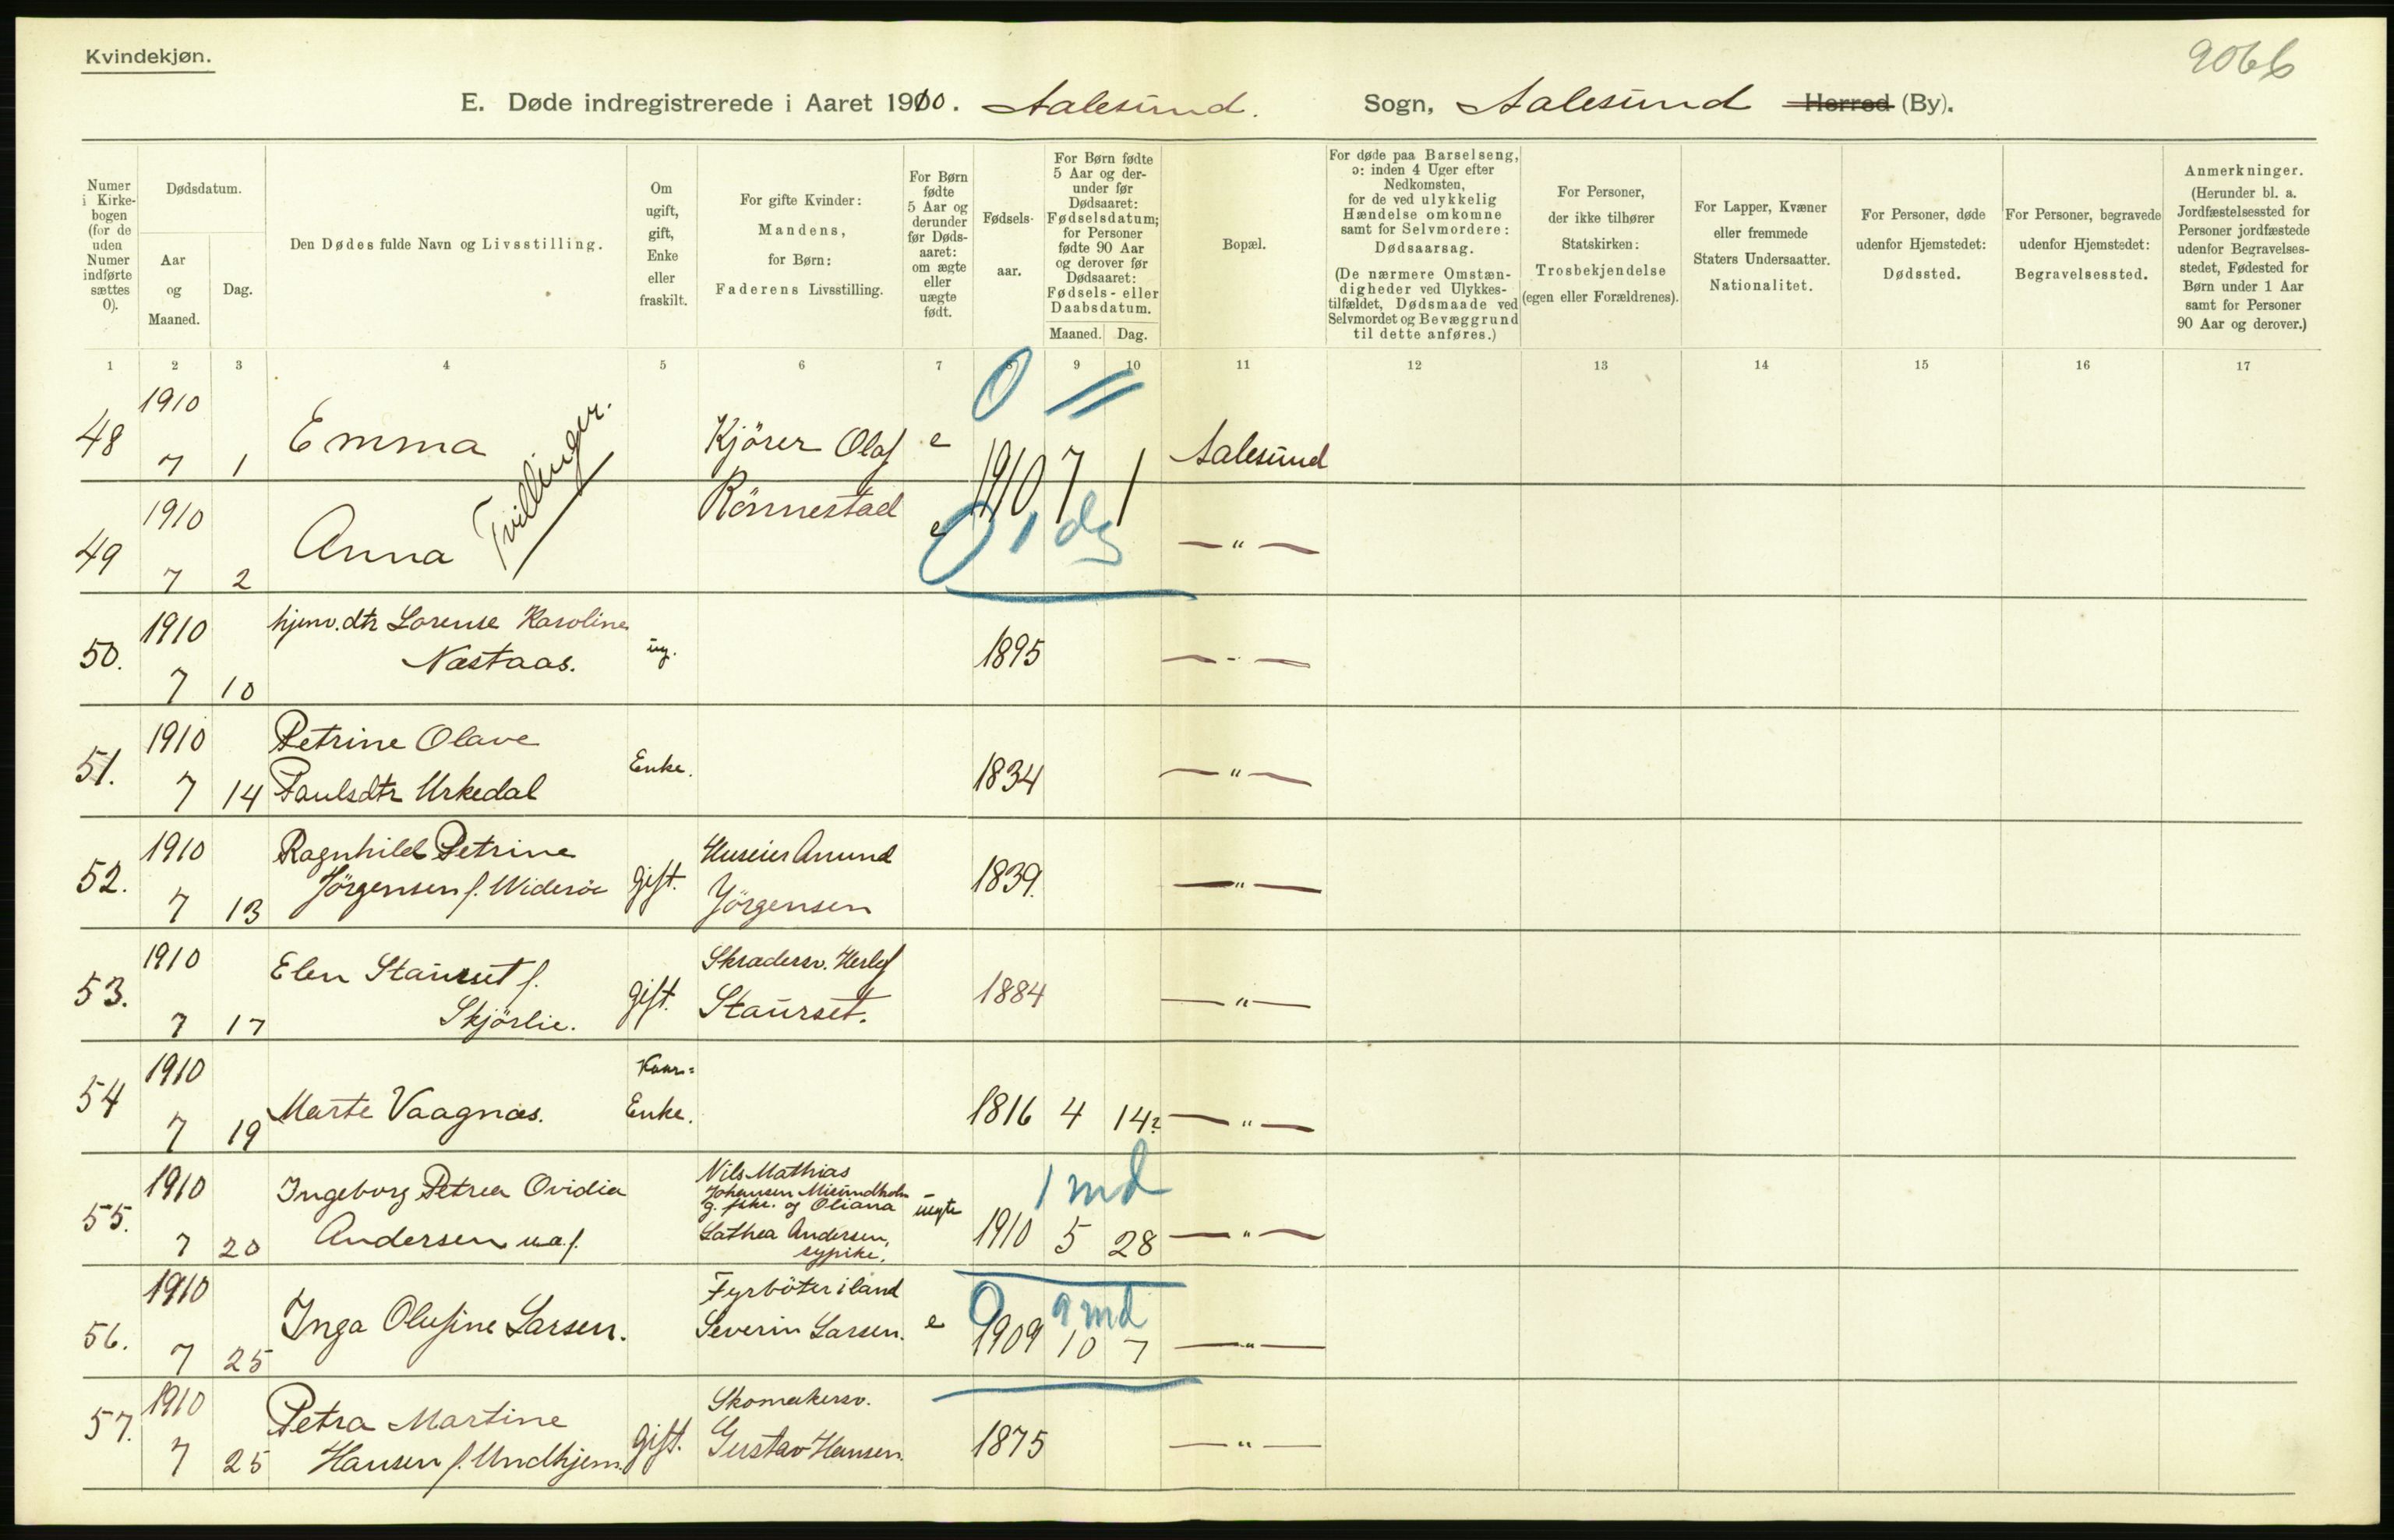 Kvindekjøn.
9066
E. Døde indregistrerede i Aaret 1910. Aalesund. Sogn, Aalesund Herred (By).
Numer i Kirkebogen (for de uden Numer indførte sættes 0).
Dødsdatum.
Aar og Maaned.
Dag.
Den Dødes fulde Navn og Livsstilling.
Om ugift, gift, Enke eller fraskilt.
For gifte Kvinder: Mandens, for Børn: Faderens Livsstilling.
For Børn fødte 5 Aar og derunder før Dødsaaret: om ægte eller uægte født.
Fødselsaar.
For Børn fødte 5 Aar og derunder før Dødsaaret: Fødselsdatum; for Personer fødte 90 Aar og derover før Dødsaaret: Fødsels- eller Daabsdatum.
Maaned. Dag.
Bopæl.
For døde paa Barselseng, ɔ: inden 4 Uger efter Nedkomsten, for de ved ulykkelig Hændelse omkomne samt for Selvmordere: Dødsaarsag.
(De nærmere Omstændigheder ved Ulykkestilfældet, Dødsmaade ved Selvmordet og Bevæggrund til dette anføres.)
For Personer, der ikke tilhører Statskirken: Trosbekjendelse (egen eller Forældrenes).
For Lapper, Kvæner eller fremmede Staters Undersaatter. Nationalitet.
For Personer, døde udenfor Hjemstedet: Dødssted.
For Personer, begravede udenfor Hjemstedet: Begravelsessted.
Anmerkninger. (Herunder bl. a. Jordfæstelsessted for Personer jordfæstede udenfor Begravelsesstedet, Fødested for Børn under 1 Aar samt for Personer 90 Aar og derover.)
1 2 3 4 5 6 7 8 9 10 11 12 13 14 15 16 17
0 "
48 1910 7 1 Emma Kjörer Olaf e 1910 7 1 Aalesund
Tvillinger.
49 1910 7 2 Anna Rönnestad e — " —
0 1 dg
50. 1910 7 10 hjemv. dtr Lorense Karoline
Næstaas. ug. 1895 — " —
51. 1910 7 14 Petrine Olave
Paulsdtr Urkedal Enke. 1834 — " —
52. 1910 7 13 Ragnhild Petrine
Jörgensen f. Wideröe gift. Huseier Anund
Jörgensen 1839. — " —
53. 1910 7 17 Elen Staurset f.
Skjörlie. gift. Skradersv. Herlof
Staurset. 1884 — " —
54 1910 7 19 Marte Vaagnæs. Enke. 1816 4 14? — " —
1 md
55. 1910 7 20 Ingeborg Petrea Ovidia
Andersen u.a.f. Nils Mathias
Johansen Misundholm
g. fisk. og Oliana
Lathea Andersen,
sypike. uegte 1910 5 28 — " —
0 9 md
56. 1910 7 25 Inga Olufine Larsen. Fyrböter i land
Severin Larsen. e 1909 10 7 — " —
57. 1910 7 25 Petra Martine
Hansen f. Undhjem. gift. Skomakersv.
Gustav Hansen. 1875 — " —